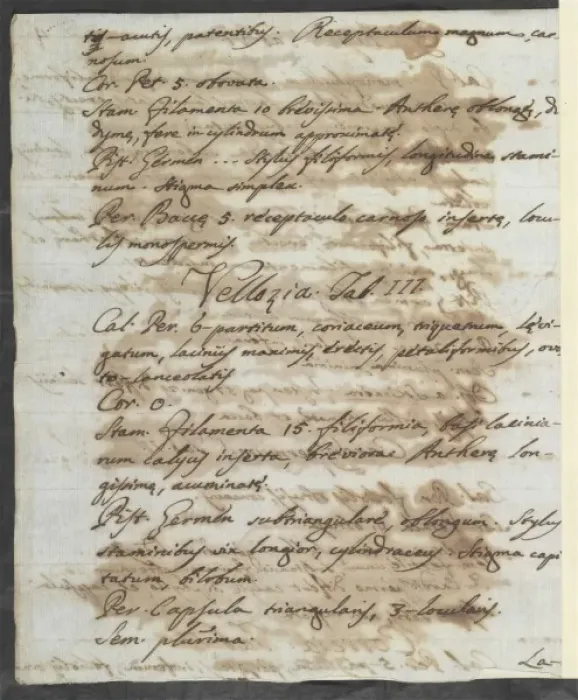 to-acutis, patentibus. Receptaculum magnum, car-
nosum.
Cor. Pet. 5. obovata.
Stam. Filamenta 10 brevissima. Antherę oblongę, di-
dymę, fere in cylindrum approximatę.
Pist. Germen ... Stylus filiformis, longitudine stami-
num. Stigma simplex.
Per. Baccę 5. receptaculo carnoso insertę, locu-
lis monospermis.
Vellozia. Tab. III.
Cal. Per. 6-partitum, coriaceum, triquetrum, lęvi-
gatum, laciniis maximis, erectis, petaliformibus, ova
to-lanceolatis
Cor. 0.
Stam. Filamenta 15. filiformia, basi lacinia-
rum calycis inserta, breviora. Antherę lon-
gissimę, acuminatę.
Pist. Germen subtriangulare, oblongum. Stylus
staminibus vix longior, cylindraceus. Stigma capi
tatum bilobum.
Per. Capsula triangularis, 3-locularis.
Sem. plurima.
La-